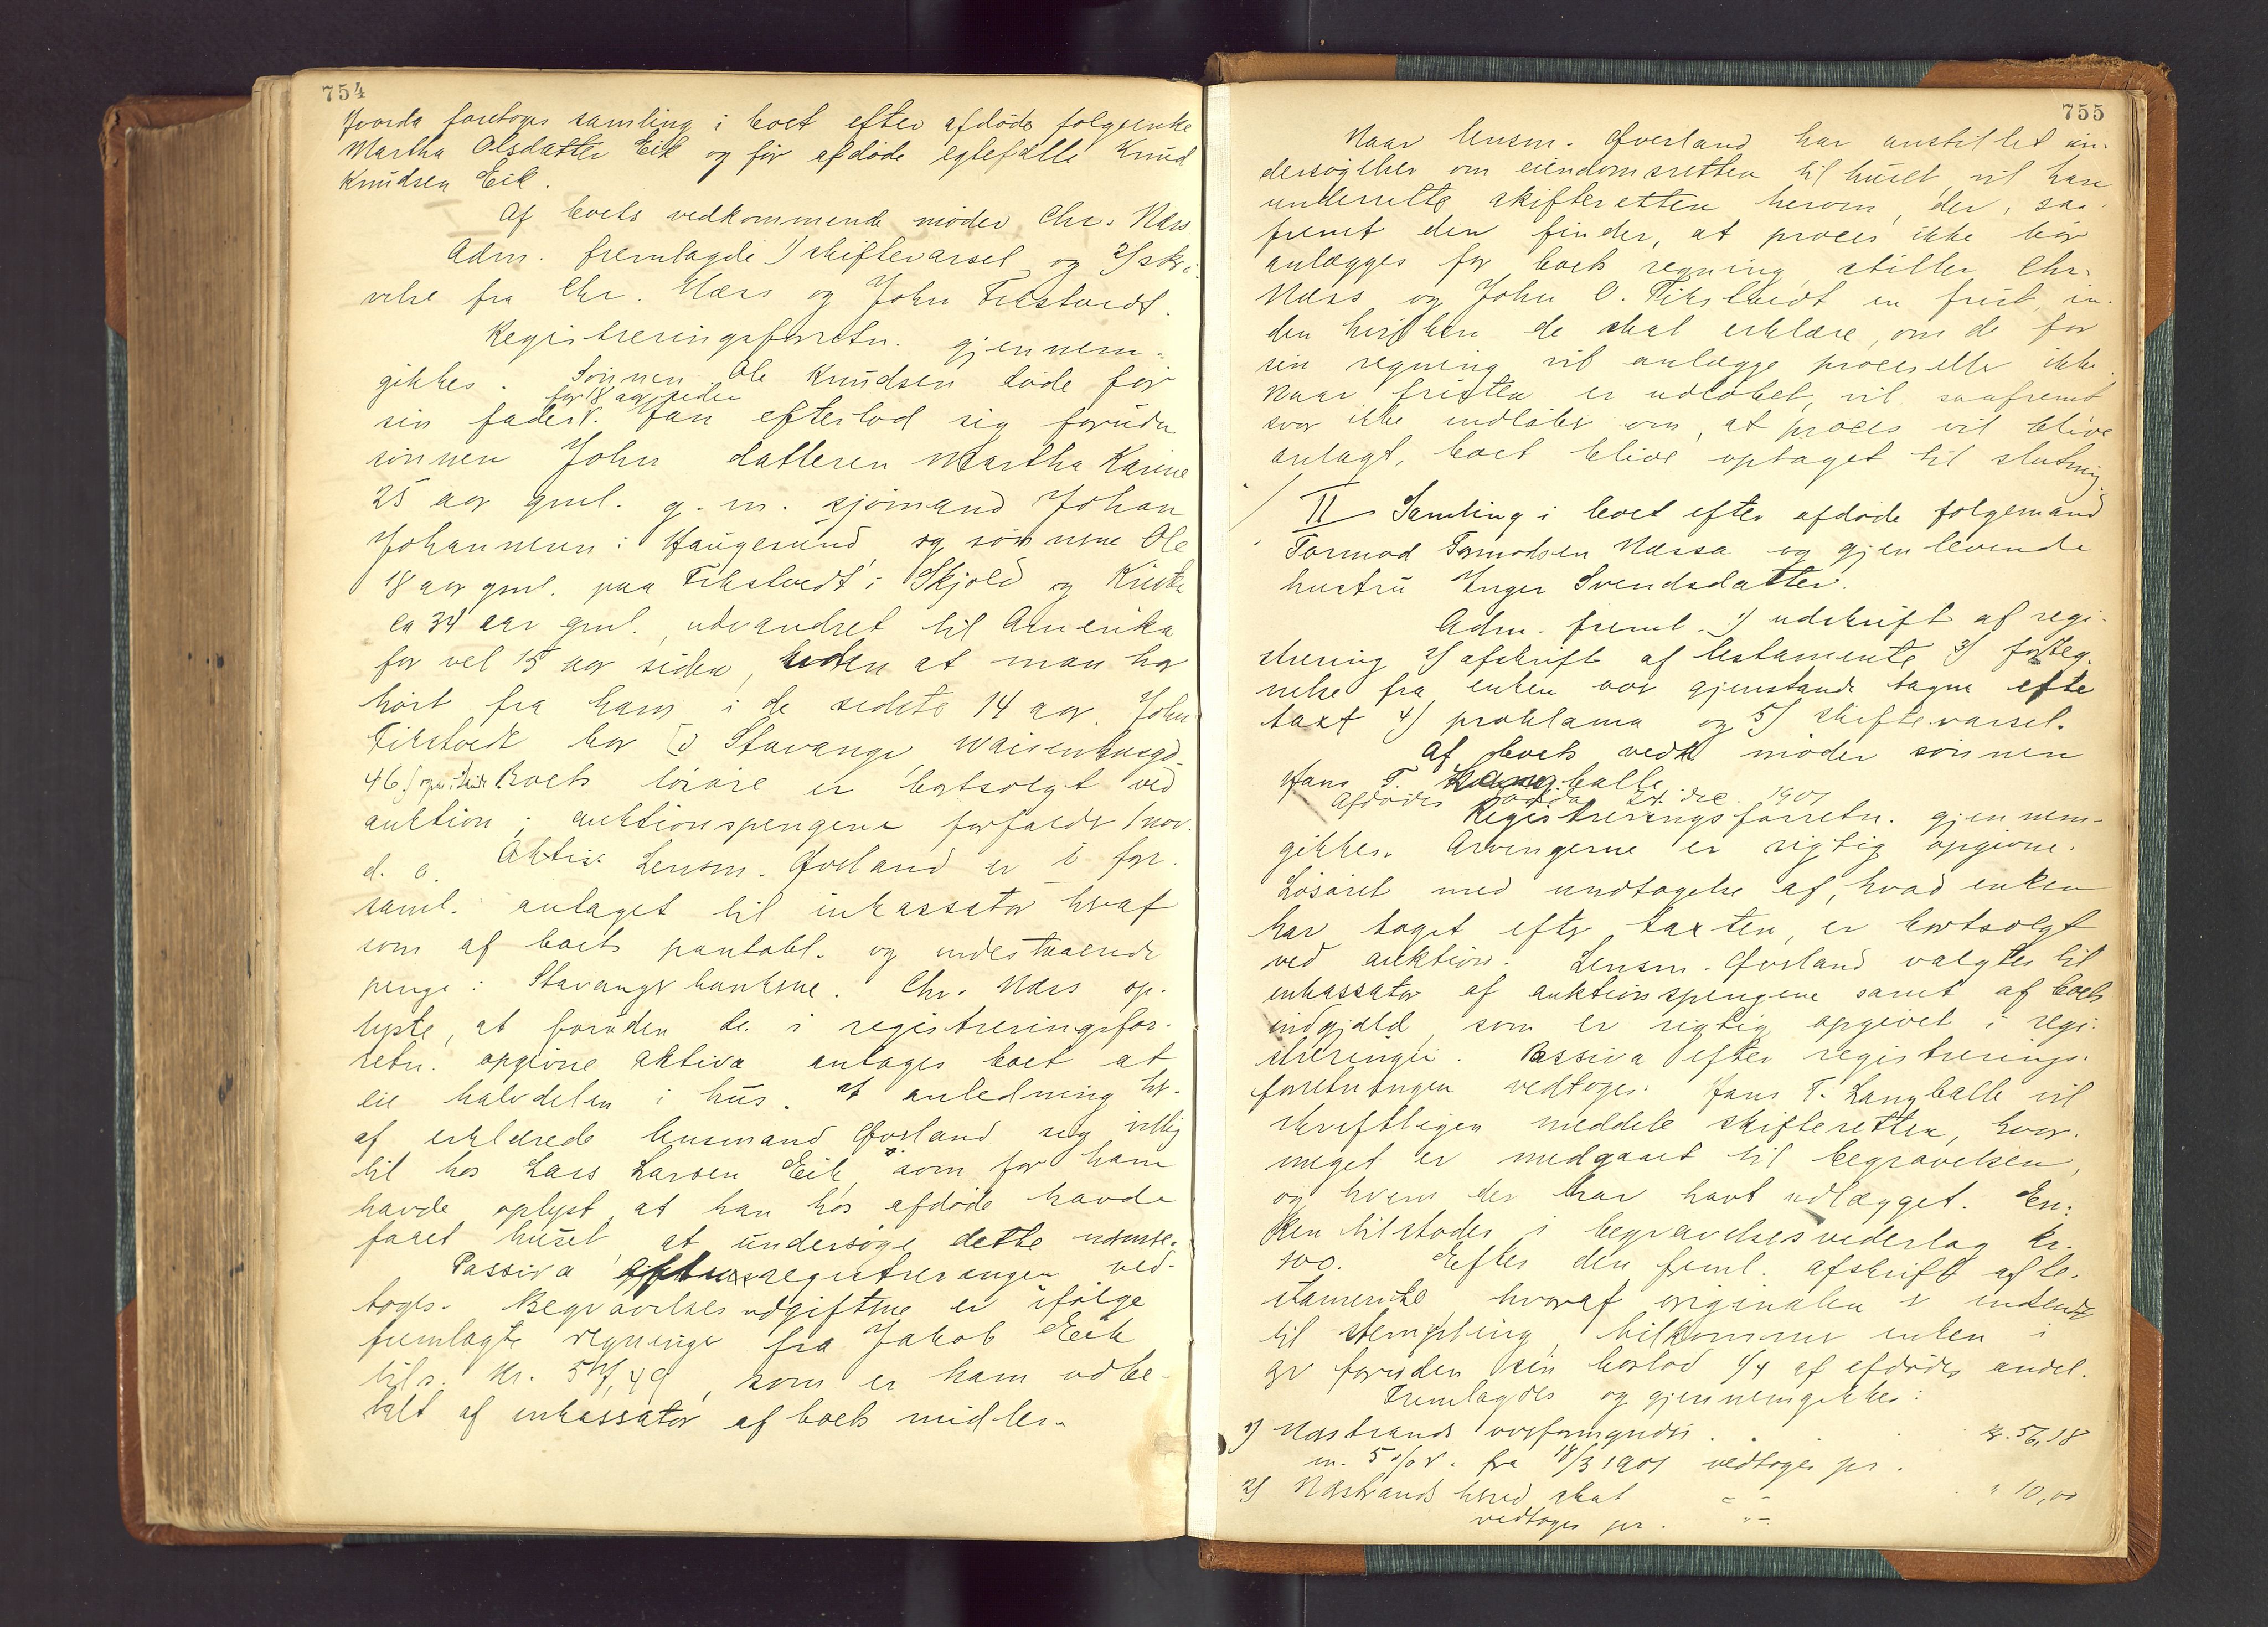 754
Hvorda foretoges samling i boet efter afdøde følgeenke
Martha Olsdatter Eik og før afdøde egtefælle Knud
Knudsen Eik.
Af boets vedkommende møder Chr. Næss
Adm. fremlagde 1) skiftevarsel og 2) skri-
velse fra Chr. Næss og John Tikstvedt.
Registreringsforretn. gjennem-
gikkes. Sønnen Ole Knudsen døde før
for 18 aar siden
sin fader. Han efterlod sig foruden
sønnen John datteren Martha Karine
25 aar gml. g. m. sjømand Johan
Johannesen i Haugesund og sønnerne Ole
18 aar gml. paa Tikstvedt i Skjold og
ca 34 aar gml. udvandret til Amerika
for vel 15 aar siden, uden at man har
hørt fra ham i de sidste 14 aar. John
Tikstvedt bor i Stavanger, Waisenhusgd.
46. Boets løsøre er bortsolgt ved
auktion; auktionspengene forfalder 1 nov.
d. a. Aktiv. Lensm. Øverland er i for.
saml. antaget til inkassator heraf
som af boets pantobl. og indestaaende
penge i Stavanger bankerne. Chr. Næss op-
lyste, at foruden de i registreringsfor-
retn. opgivne aktiva antages boet at
eie halvdelen i hus. I anledning her-
af erklærede lensmand Øverland sig villig
til hos Lars Larsen Eik, som for ham
havde oplyst, at han hos afdøde havde
faaet huset, at undersøge dette nærme-
Passiva efter registreringen ved-
toges. Begravelsesudgifterne er ifølge
fremlagte regninger fra Jakob Eik
tils. kr. 57,49, som er ham udbe-
talt af inkassator af boets midler.
755
Naar lensm. Øverland har anstillet un-
dersøgelser om eiendomsretten til huset vil han
underrette skifteretten herom, der, saa-
fremt den finder, at proces ikke bør
anlægges for boets regning, stiller Chr.
Næss og John O. Tikstvedt en frist, in-
den hvilken de skal erklære, om de for
sin regning vil anlægge proces eller ikke.
Naar fristen er udløbet, vil saafremt
svar ikke indløber om, at proces vil blive
anlagt, boet blive optaget til slutning.
II Samling i boet efter afdøde følgemand
Tormod Tormodsen Næssa og gjenlevende
hustru Inger Svendsdatter.
Adm. freml. 1) udskrift af regi-
strering 2) afskrift af testamente 3) forteg-
nelse fra enken over gjenstande tagne efter
taxt 4) proklama og 5) skiftevarsel.
Af boets vedk. møder sønnen
Hans T. Langballe
Afdødes dødsdag 24. dec. 1901
Registreringsforretn. gjennem-
gikkes. Arvingerne er rigtig opgivne.
Løsøret med undtagelse af, hvad enken
har taget efter taxten, er bortsolgt
ved auktion. Lensm. Øverland valgtes til
inkassator af auktionspengene samt af boets
indgjæld som er rigtig opgivet i regi-
streringen. Passiva efter registrerings-
foretningen vedtoges. Hans T. Langballe vil
skriftligen meddele skifteretten, hvor-
meget er medgaaet til begravelsen,
og hvem der har havt udlægget. En-
ken tilstodes i begravelsesvederlag kr.
100. Efter den freml. afskrift af te-
stamente, hvoraf originalen er indsendt
til stempling, tilkommer enken i
arv foruden sin boslod 1/4 af afdødes andel.
Fremlagdes og gjennemgikkes:
1) Nærstrands overformynderi . . . kr. 56,18
m. 5 % r. fra 18/3 1901 vedtoges pr.
2) Nærstrands herred skat " 10,00
vedtoges pr.